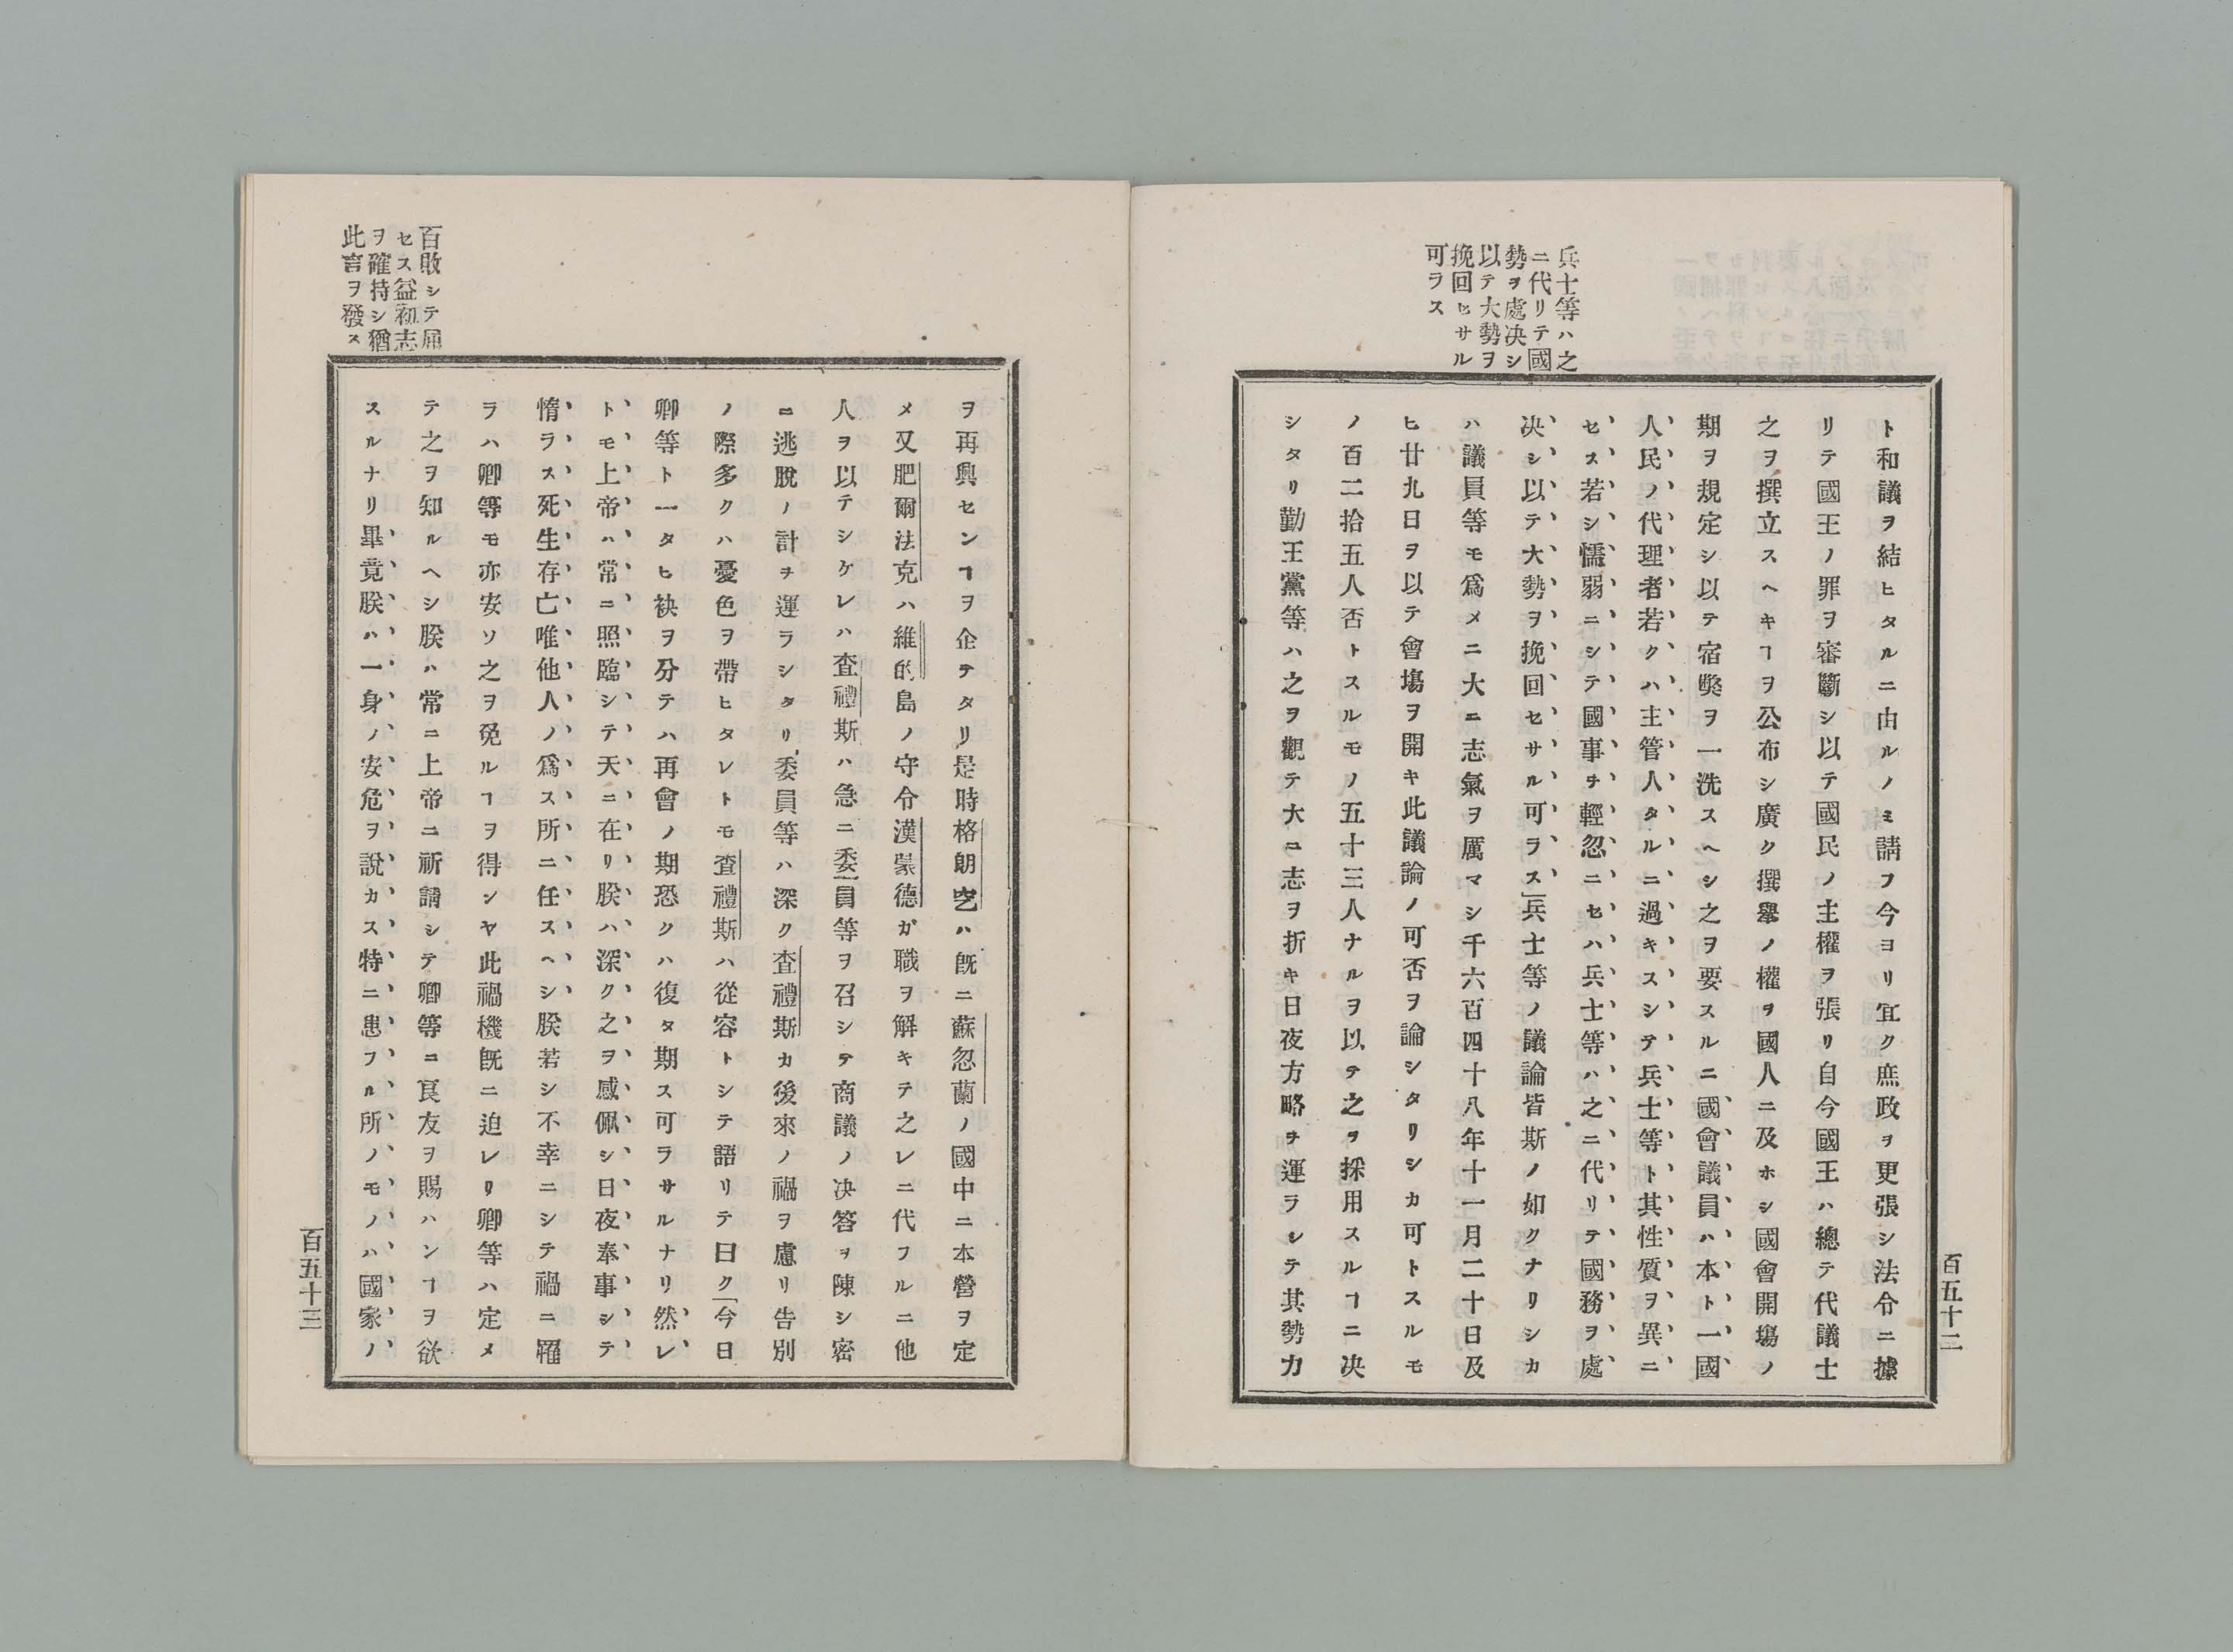 百五十二
兵士等ハ之
ニ代リテ國
勢ヲ處决シ
以テ大勢ヲ
挽回ヒサル
可ラス
ト和議ヲ結ヒタルニ由ルノミ請フ今ヨリ宜ク庶政ヲ更張シ法令ニ據
リテ國王ノ罪ヲ審斷シ以テ國民ノ主權ヲ張リ自今國王ハ總テ代議士
之ヲ撰立スヘキヿヲ公布シ廣ク撰擧ノ權ヲ國人ニ及ホシ國會開塲ノ
期ヲ規定シ以テ宿獘ヲ一洗スヘシ之ヲ要スルニ國會議員ハ本ト一國
人民ノ代理者若クハ主管人タルニ過キスシテ兵士等ト其性質ヲ異ニ
セス若シ懦弱ニシテ國事ヲ輕忽ニセハ兵士等ハ之ニ代リテ國務ヲ處
决シ以テ大勢ヲ挽回セサル可ラス」兵士等ノ議論皆斯ノ如クナリシカ
ハ議員等モ爲メニ大ニ志氣ヲ厲マシ千六百四十八年十一月二十日及
ヒ廿九日ヲ以テ會塲ヲ開キ此議論ノ可否ヲ論シタリシカ可トスルモ
ノ百二拾五人否トスルモノ五十三人ナルヲ以テ之ヲ採用スルヿニ决
シタリ勤王黨等ハ之ヲ觀テ大ニ志ヲ折キ日夜方略ヲ運ラシテ其勢力
百敗シテ屈
セス益初志
ヲ確持シ猶
此言ヲ發ス
ヲ再興センヿヲ企テタリ是時格朗空ハ旣ニ蘇忽蘭ノ國中ニ本營ヲ定
メ又肥爾法克ハ維的島ノ守令漢蒙德ガ職ヲ解キテ之レニ代フルニ他
人ヲ以テシケレハ査禮斯ハ急ニ委員等ヲ召シテ商議ノ决答ヲ陳シ密
ニ逃脫ノ計ヲ運ラシタリ委員等ハ深ク査禮斯カ後來ノ禍ヲ慮リ告別
ノ際多クハ憂色ヲ帶ヒタレトモ査禮斯ハ從容トシテ語リテ曰ク「今日
卿等ト一タヒ袂ヲ分テハ再會ノ期恐クハ復タ期ス可ラサルナリ然レ
トモ上帝ハ常ニ照臨シテ天ニ在リ朕ハ深ク之ヲ感佩シ日夜奉事シテ
惰ラス死生存亡唯他人ノ爲ス所ニ任スヘシ朕若シ不幸ニシテ禍ニ罹
ラハ卿等モ亦安ソ之ヲ免ルヿヲ得ンヤ此禍機旣ニ迫レリ卿等ハ定メ
テ之ヲ知ルヘシ朕ハ常ニ上帝ニ祈請シテ卿等ニ良友ヲ賜ハンヿヲ欲
スルナリ畢竟朕ハ一身ノ安危ヲ說カス特ニ患フル所ノモノハ國家ノ
百五十三